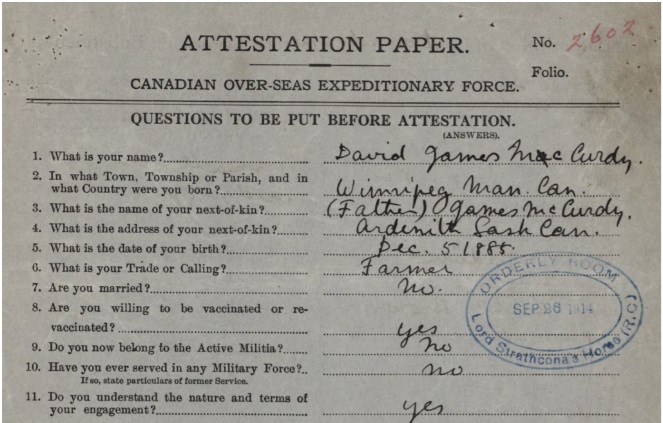 ATTESTATION PAPER.
No. 2602
Folio.
CANADIAN OVER-SEAS EXPEDITIONARY FORCE.
QUESTIONS TO BE PUT BEFORE ATTESTATION.
(ANSWERS).
1. What is your name? David James MacCurdy.
2. In what Town, Township or Parish, and in
what Country were you born? Winnipeg Man. Can.
3. What is the name of your next-of-kin? (Father) James McCurdy.
4. What is the address of your next-of-kin? Sask Can.
5. What is the date of your birth? Dec. 5 1885.
6. What is your Trade or Calling? Farmer
7. Are you married? No.
8. Are you willing to be vaccinated or re-
vaccinated? yes
9. Do you now belong to the Active Militia? No
10. Have you ever served in any Military Force? no
If so, state particulars of former Service.
11. Do you understand the nature and terms of
your engagement? yes
ORDERLY ROOM
SEP 26 1914
Lord Strathcona's Horse (R.C.)